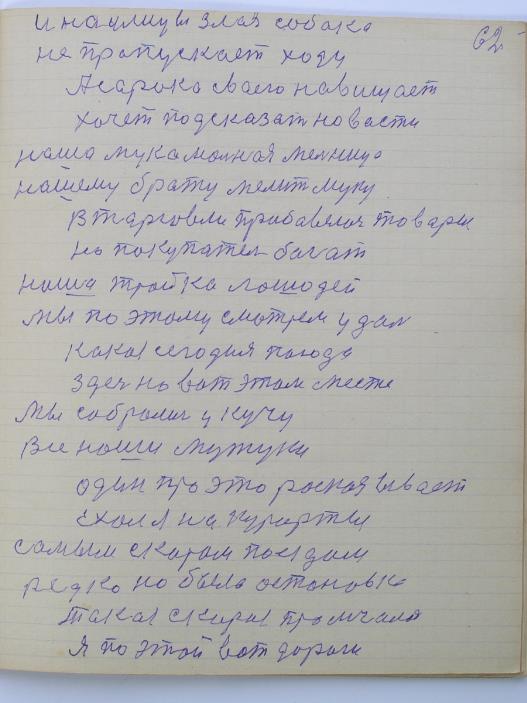 62
и на улицы злая собака
не пропускает ходу
А сарока всего навищает
хочет подсказат новасти
наша мукамолная мелница
нашему брату мелит муку
В тарговли прибавялся товары
но покупател багат
наша тройка лошодей
мы по этому смотрем у дал
какая сегодня погода
здес на вот этом месте
мы собролис у кучу
Все наши мужуки
один про это росказывает
ехал я на курорты
самым скорам поездам
редко но была остоновка
такая скорая промчалас
я по этой вот дороги